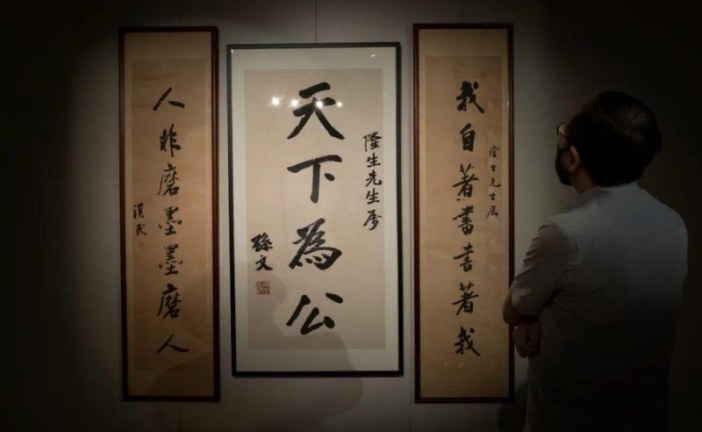 我自著書書著我
隆生先生屬
天下為公
孫文
人非磨墨墨磨人
漢民